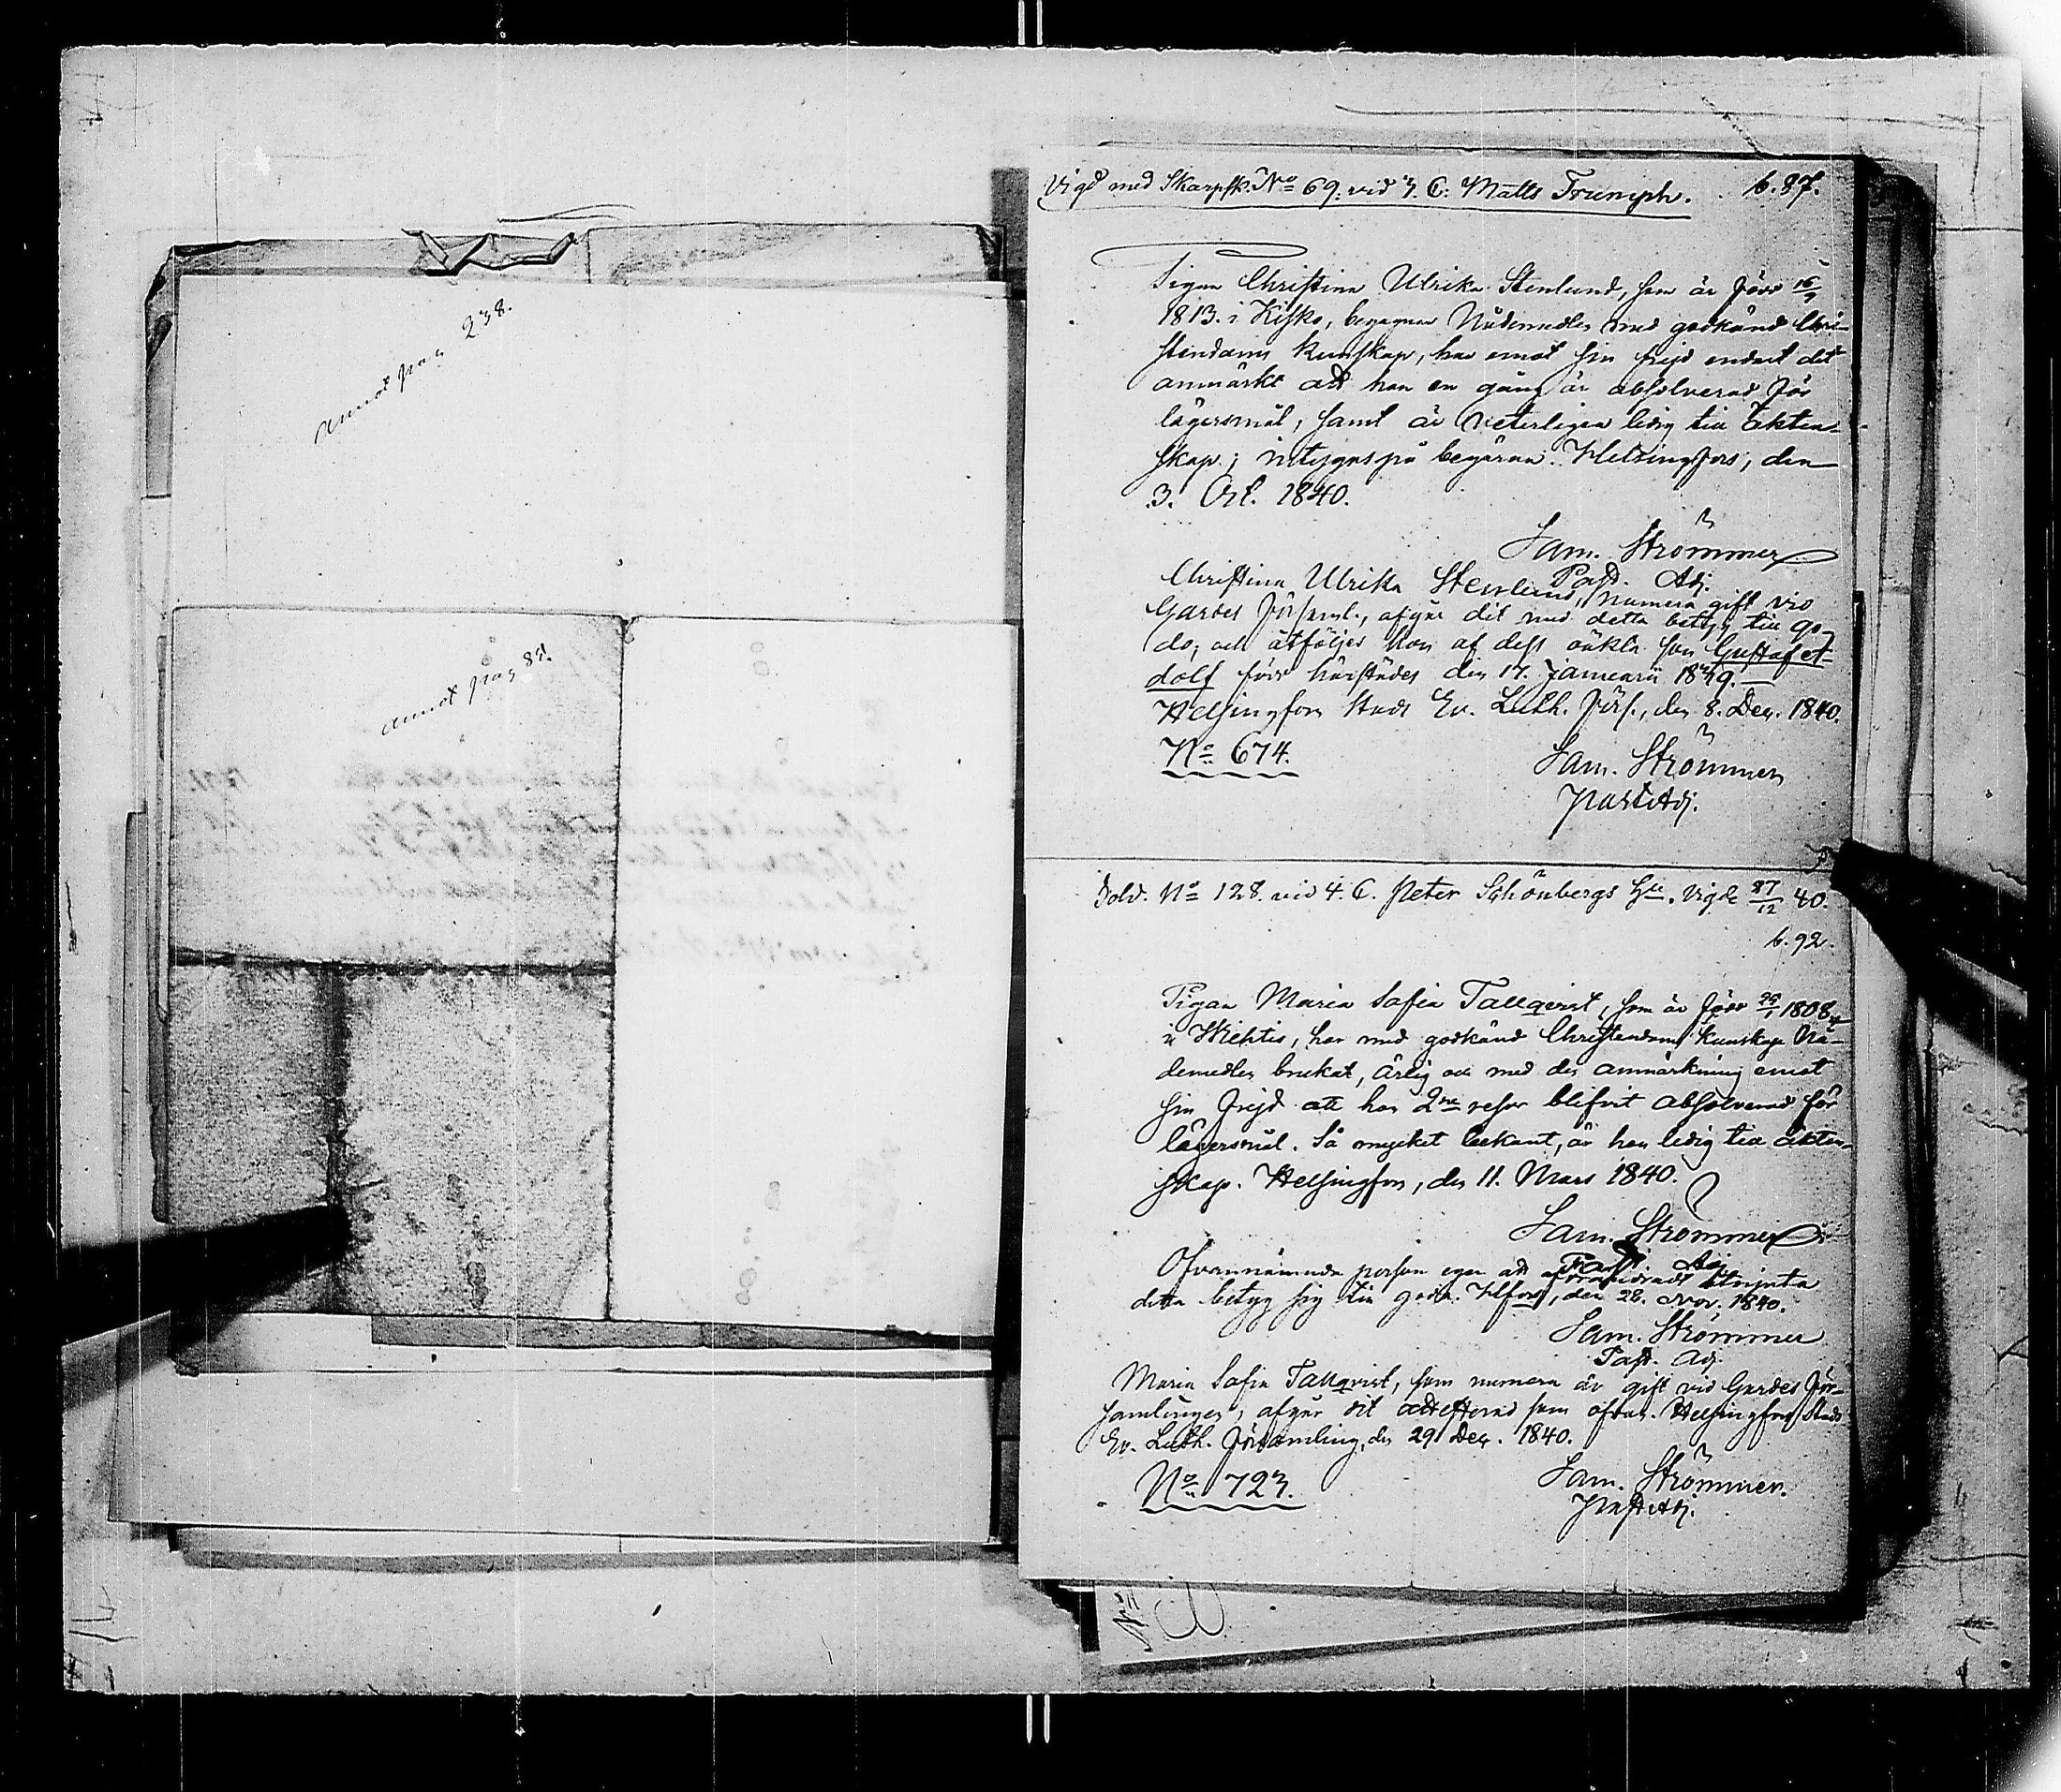 annot pag 238.
annot pag 87.
Vigd med Skarpsk. No 69. vid 3. C. Matts Triumph. b. 87.
Pigan Christina Ulrika Stenlund, som är född 16/9
1813. i Kisko, begagnar Nådemedlen med godkänd Chri-
stendoms kunskap, har emot sin frejd endast det
anmärkt att hon en gång är absolverad för
lägersmål, samt är veterligen ledig till äkten-
skap; intygas på begäran. Helsingfors, den
3. Oct. 1840.
Sam. Strömmer
Past. Adj.
Christina Ulrika Stenlund, numera gift vid
Gardes församl., afgår dit med detta betyg till go-
do, och åtföljes hon af dess oäkta son Gustaf A-
dolf född härstädes den 17. Januarii 1839.
Helsingfors Stads Ev. Luth. förs., den 8. Dec. 1840.
No 674.
Sam. Strömmer
Past. Adj.
Sold. No 128. vid 4. C. Peter Schönbergs Hu. Vigde 27/12 40.
b. 92.
Pigan Maria Sofia Tallqvist, som är född 25/1 1808
i Wichtis, har med godkänd Christendoms kunskap Nå-
demedlen brukat, ärlig och med den anmärkning emot
sin frejd att hon 2ne resor blifvit absolverad för
lägersmål. Så mycket bekant, är hon ledig till äkten-
skap. Helsingfors, den 11. Mars 1840.
Sam. Strömmer
Past. Adj.
Ofvannämnda person eger att oförändradt åtnjuta
detta betyg sig till godo. Hlfors, den 28. Nov. 1840.
Sam. Strömmer
Past. Adj.
Maria Sofia Tallqvist, som numera är gift vid Gardes för-
samlingen, afgår dit med frejd som ofvan. Helsingfors Stads
Ev. Luth. församling, den 29 Dec. 1840.
No 723.
Sam. Strömmer.
Past. Adj.